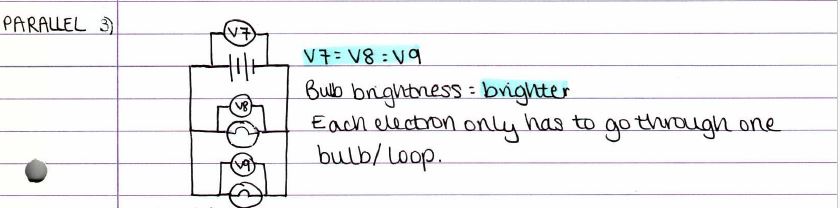 PARALLEL 3)
V7
V7 = V8 = V9
Bulb brightness = brighter
V8
Each electron only has to go through one
bulb/loop.
V9